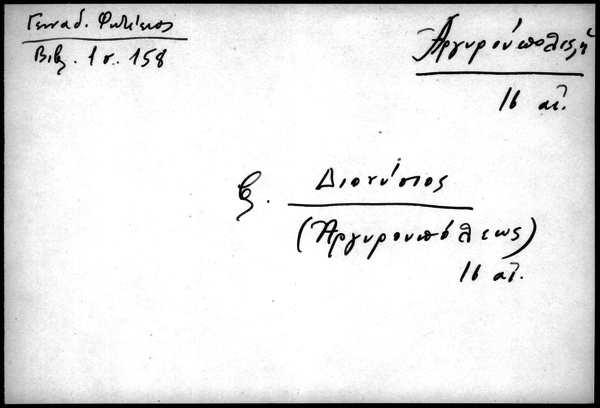 Γενναδ. Φωτίειος
Βιβλ. 1 σ. 158
Ἀργυρούπολις, ἡ
16 αἰ.
Διονύσιος
(Ἀργυρουπόλεως)
16 αἰ.